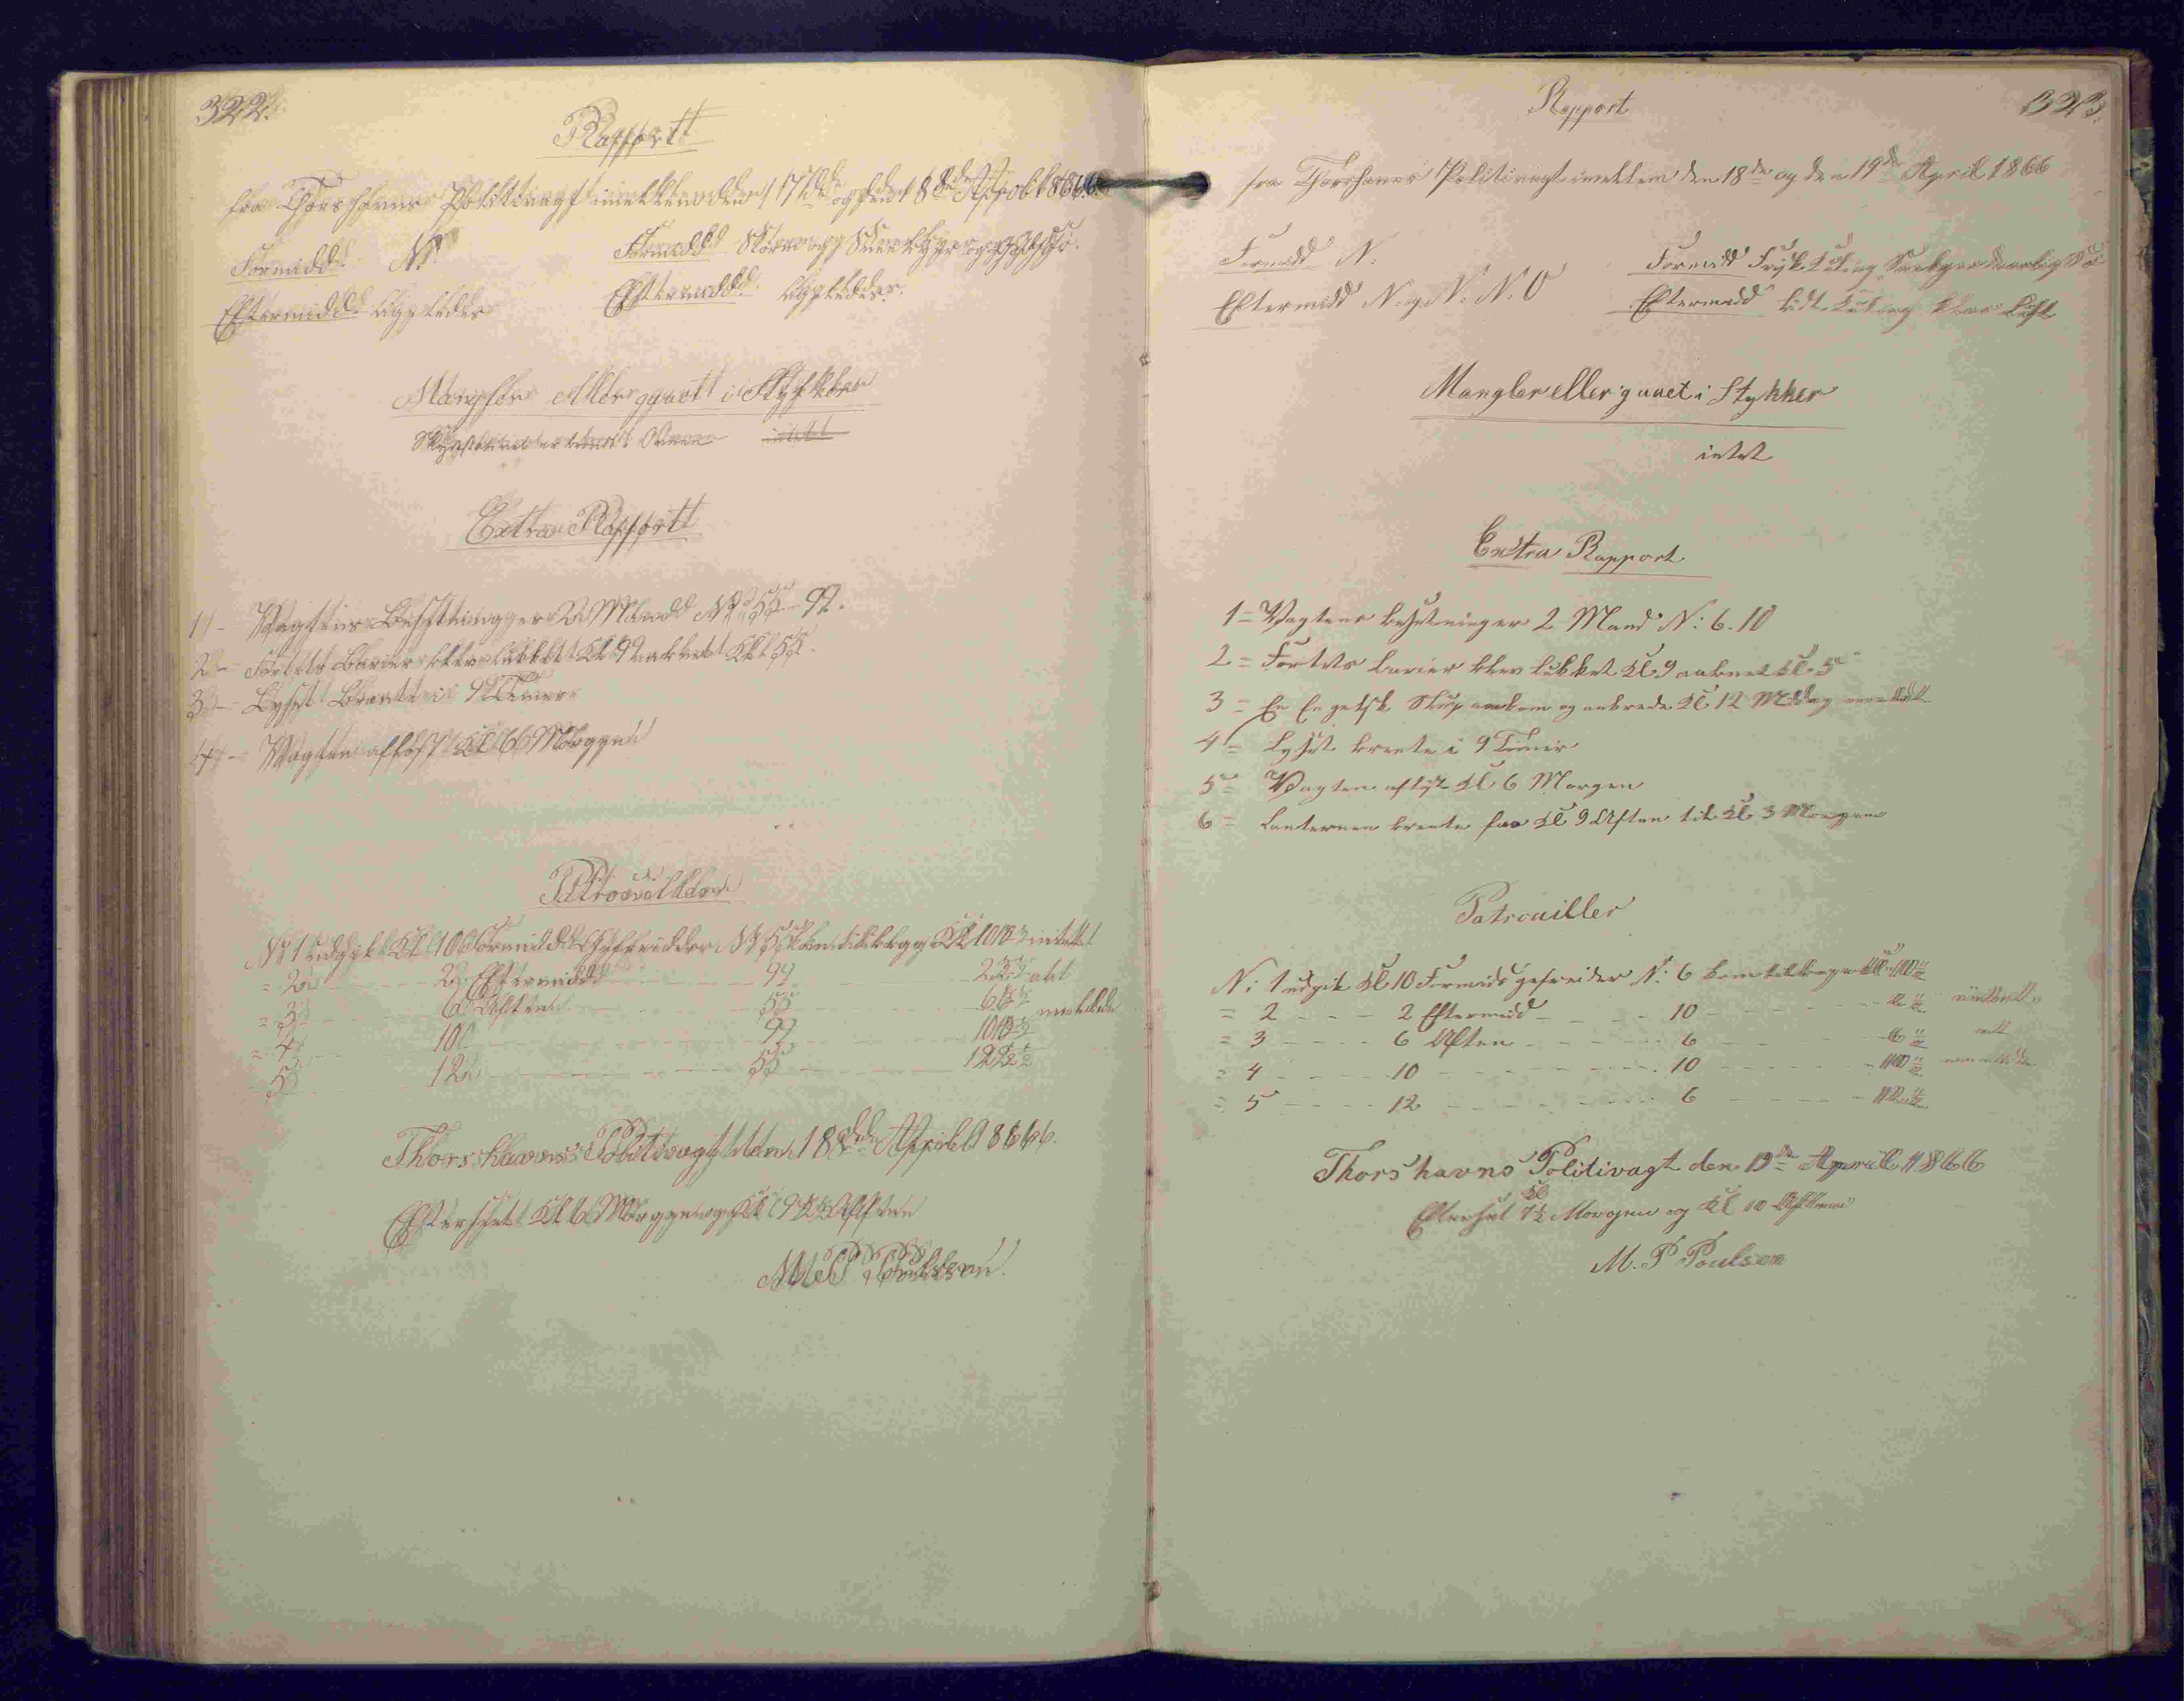 322.
Rapport
fra Thorshavns Politivagt imellem den 17de og den 18de April 1866.
Formidd. N. Formidd. Storm og Sneebyger og
Eftermidd. ligeledes Eftermidd. ligeledes.
Mangler eller gaaet i Stykker
intet
Extra Rapport
1 - Vagtens Besetninger 2 Mand No 5 - 9.
2 - Fortets Barier blev lukket Kl 9 aabnet Kl 5.
3 - Lyset brente i 9 Timer
4 - Vagten afløst Kl 6 Morgen
Patrouiller
No 1 udgik Kl 10 Formidd Gefreider No 5 kom tilbage Kl 10½ intet
= 2 2 Eftermidd 9 2½ at
= 3 6 Aften 5 6½ melde
= 4 10 9 10½
5 12 5 12½
Thorshavns Politivagt den 18de April 1866.
Efterseet Kl 6 Morgen og Kl 9½ Aften
M. P. Poulsen.
323.
Rapport
fra Thorshavns Politivagt imellem den 18de og den 19de April 1866
Formidd N. Formidd Frisk Kuling Sneebyger
Eftermidd N. og N. N. O Eftermidd lidt Kuling klar Luft
Mangler eller gaaet i Stykker
intet
Extra Rapport
1 = Vagtens besetninger 2 Mand No: 6. 10
2 = Fortets barier blev lukket Kl. 9 aabnet Kl. 5
3 = En Engelsk Slup ankom og ankrede Kl. 12 Middag
4 = Lyset brente i 9 Timer
5 = Vagten afløst Kl. 6 Morgen
6 = Lanternen brente fra Kl 9 Aften til Kl. 3 Morgen
Patrouiller
No: 1 udgik Kl 10 Formidd gefreider No. 6 kom tilbage Kl. 10½
= 2 2 Eftermidd 10 2½ intet
= 3 6 Aften 6 6½ at
= 4 10 10 10½ melde
= 5 12 6 12½
Thorshavns Politivagt den 19de April 1866
Efterset Kl 7½ Morgen og Kl 10 Aften
M. P Poulsen